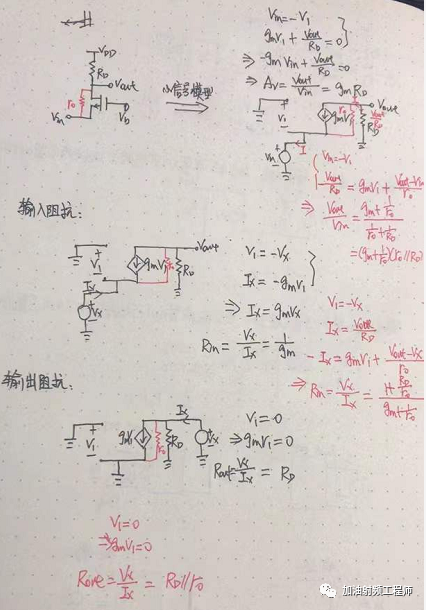 V_DD
R_D
Vout
r_o
Vin
V_b
小信号模型
Vin = -V_1
g_mV_1 + Vout/R_D = 0
⇒ -g_mVin + Vout/R_D = 0
⇒ Av = Vout/Vin = g_mR_D
V_1
g_mV_1
r_o
Vout
R_D
Vout/R_D
I
Vin
Vin = -V_1
-Vout/R_D = g_mV_1 + (Vout-Vin)/r_o
⇒ Vout/Vin = (g_m + 1/r_o)/(1/r_o + 1/R_D)
= (g_m + 1/r_o)(r_o//R_D)
输入阻抗:
V_1
g_mV_1
r_o
R_D
Vout
I_x
V_x
V_1 = -V_x
I_x = -g_mV_1
⇒ I_x = g_mV_x
Rin = V_x/I_x = 1/g_m
V_1 = -V_x
I_x = Vout/R_D
-I_x = g_mV_1 + (Vout-V_x)/r_o
⇒ Rin = V_x/I_x = (1+R_D/r_o)/(g_m+1/r_o)
输出阻抗:
V_1
g_mV_1
r_o
R_D
I_x
V_x
V_1 = 0
⇒ g_mV_1 = 0
Rout = V_x/I_x = R_D
V_1 = 0
⇒ g_mV_1 = 0
Rout = V_x/I_x = R_D//r_o
加油射频工程师